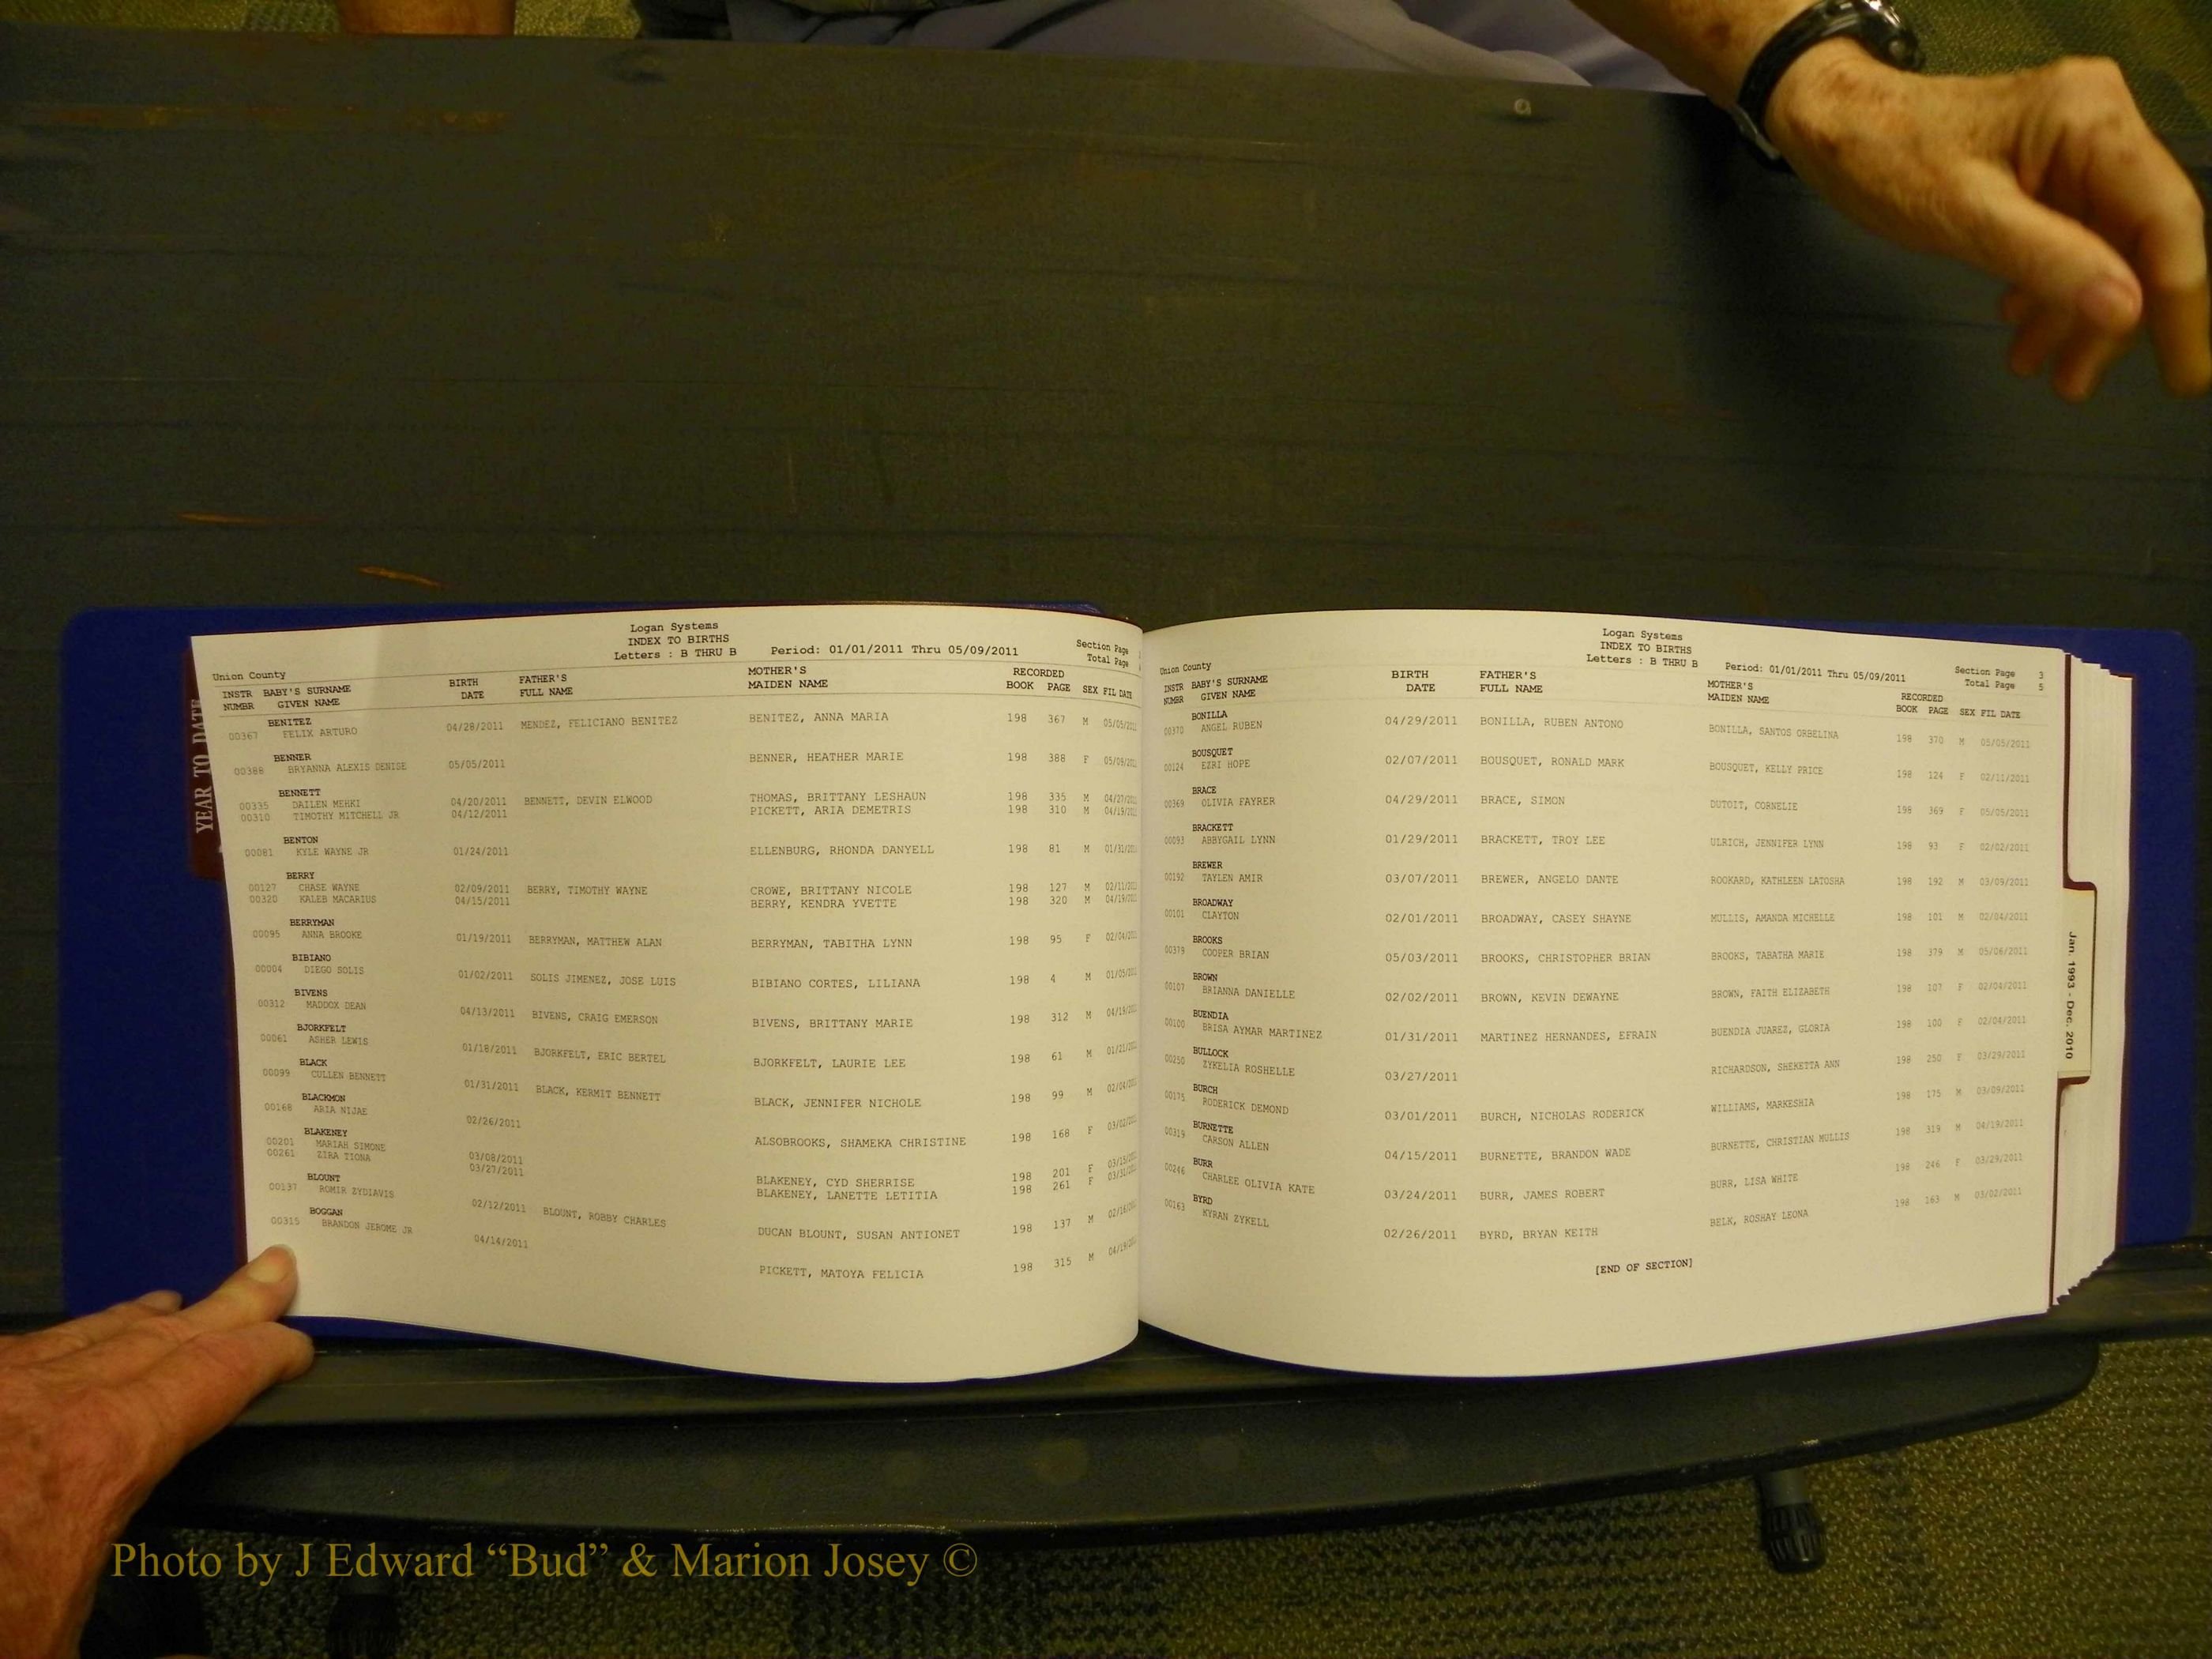 Logan Systems
INDEX TO BIRTHS
Letters : B THRU B Period: 01/01/2011 Thru 05/09/2011 Section Page
Total Page
Union County
INSTR BABY'S SURNAME BIRTH FATHER'S MOTHER'S RECORDED
NUMBR GIVEN NAME DATE FULL NAME MAIDEN NAME BOOK PAGE SEX FIL DATE
BENITEZ
00367 FELIX ARTURO 04/28/2011 MENDEZ, FELICIANO BENITEZ BENITEZ, ANNA MARIA 198 367 M 05/05/2011
BENNER
00388 BRYANNA ALEXIS DENISE 05/05/2011 BENNER, HEATHER MARIE 198 388 F
BENNETT
00335 DAILEN MEHKI 04/20/2011 BENNETT, DEVIN ELWOOD THOMAS, BRITTANY LESHAUN 198 335 M 04/27/201
00310 TIMOTHY MITCHELL JR 04/12/2011 PICKETT, ARIA DEMETRIS 198 310 M 04/19/201
BENTON
00081 KYLE WAYNE JR 01/24/2011 ELLENBURG, RHONDA DANYELL 198 81 M 01/31/201
BERRY
00127 CHASE WAYNE 02/09/2011 BERRY, TIMOTHY WAYNE CROWE, BRITTANY NICOLE 198 127 M 02/11/201
00320 KALEB MACARIUS 04/15/2011 BERRY, KENDRA YVETTE 198 320 M 04/19/201
BERRYMAN
00095 ANNA BROOKE 01/19/2011 BERRYMAN, MATTHEW ALAN BERRYMAN, TABITHA LYNN 198 95 F 02/04/201
BIBIANO
00004 DIEGO SOLIS 01/02/2011 SOLIS JIMENEZ, JOSE LUIS BIBIANO CORTES, LILIANA 198 4 M 01/05/201
BIVENS
00312 MADDOX DEAN 04/13/2011 BIVENS, CRAIG EMERSON BIVENS, BRITTANY MARIE 198 312 M 04/19/201
BJORKFELT
00061 ASHER LEWIS 01/18/2011 BJORKFELT, ERIC BERTEL BJORKFELT, LAURIE LEE 198 61 M 01/21/201
BLACK
00099 CULLEN BENNETT 01/31/2011 BLACK, KERMIT BENNETT BLACK, JENNIFER NICHOLE 198 99 M 02/04/201
BLACKMON
00168 ARIA NIJAE 02/26/2011 ALSOBROOKS, SHAMEKA CHRISTINE 198 168 F 03/02/201
BLAKENEY
00201 MARIAH SIMONE 03/08/2011 BLAKENEY, CYD SHERRISE 198 201 F
00261 ZIRA TIONA 03/27/2011 BLAKENEY, LANETTE LETITIA 198 261 F 03/31/201
BLOUNT
00137 ROMIR ZYDIAVIS 02/12/2011 BLOUNT, ROBBY CHARLES DUCAN BLOUNT, SUSAN ANTIONET 198 137 M 02/16/201
BOGGAN
00315 BRANDON JEROME JR 04/14/2011 PICKETT, MATOYA FELICIA 198 315 M 04/19/201
YEAR TO DATE
Logan Systems
INDEX TO BIRTHS
Letters : B THRU B Period: 01/01/2011 Thru 05/09/2011 Section Page 3
Total Page 5
Union County
INSTR BABY'S SURNAME BIRTH FATHER'S MOTHER'S RECORDED
NUMBR GIVEN NAME DATE FULL NAME MAIDEN NAME BOOK PAGE SEX FIL DATE
BONILLA
00370 ANGEL RUBEN 04/29/2011 BONILLA, RUBEN ANTONO BONILLA, SANTOS ORBELINA 198 370 M 05/05/2011
BOUSQUET
00124 EZRI HOPE 02/07/2011 BOUSQUET, RONALD MARK BOUSQUET, KELLY PRICE 198 124 F 02/11/2011
BRACE
00369 OLIVIA FAYRER 04/29/2011 BRACE, SIMON DUTOIT, CORNELIE 198 369 F 05/05/2011
BRACKETT
00093 ABBYGAIL LYNN 01/29/2011 BRACKETT, TROY LEE ULRICH, JENNIFER LYNN 198 93 F 02/02/2011
BREWER
00192 TAYLEN AMIR 03/07/2011 BREWER, ANGELO DANTE ROOKARD, KATHLEEN LATOSHA 198 192 M 03/09/2011
BROADWAY
00101 CLAYTON 02/01/2011 BROADWAY, CASEY SHAYNE MULLIS, AMANDA MICHELLE 198 101 M 02/04/2011
BROOKS
00379 COOPER BRIAN 05/03/2011 BROOKS, CHRISTOPHER BRIAN BROOKS, TABATHA MARIE 198 379 M 05/06/2011
BROWN
00107 BRIANNA DANIELLE 02/02/2011 BROWN, KEVIN DEWAYNE BROWN, FAITH ELIZABETH 198 107 F 02/04/2011
BUENDIA
00100 BRISA AYMAR MARTINEZ 01/31/2011 MARTINEZ HERNANDES, EFRAIN BUENDIA JUAREZ, GLORIA 198 100 F 02/04/2011
BULLOCK
00250 ZYKELIA ROSHELLE 03/27/2011 RICHARDSON, SHEKETTA ANN 198 250 F 03/29/2011
BURCH
00175 RODERICK DEMOND 03/01/2011 BURCH, NICHOLAS RODERICK WILLIAMS, MARKESHIA 198 175 M 03/09/2011
BURNETTE
00319 CARSON ALLEN 04/15/2011 BURNETTE, BRANDON WADE BURNETTE, CHRISTIAN MULLIS 198 319 M 04/19/2011
BURR
00246 CHARLEE OLIVIA KATE 03/24/2011 BURR, JAMES ROBERT BURR, LISA WHITE 198 246 F 03/29/2011
BYRD
00163 KYRAN ZYKELL 02/26/2011 BYRD, BRYAN KEITH BELK, ROSHAY LEONA 198 163 M 03/02/2011
[END OF SECTION]
Jan. 1993 - Dec. 2010
Photo by J Edward “Bud” & Marion Josey ©